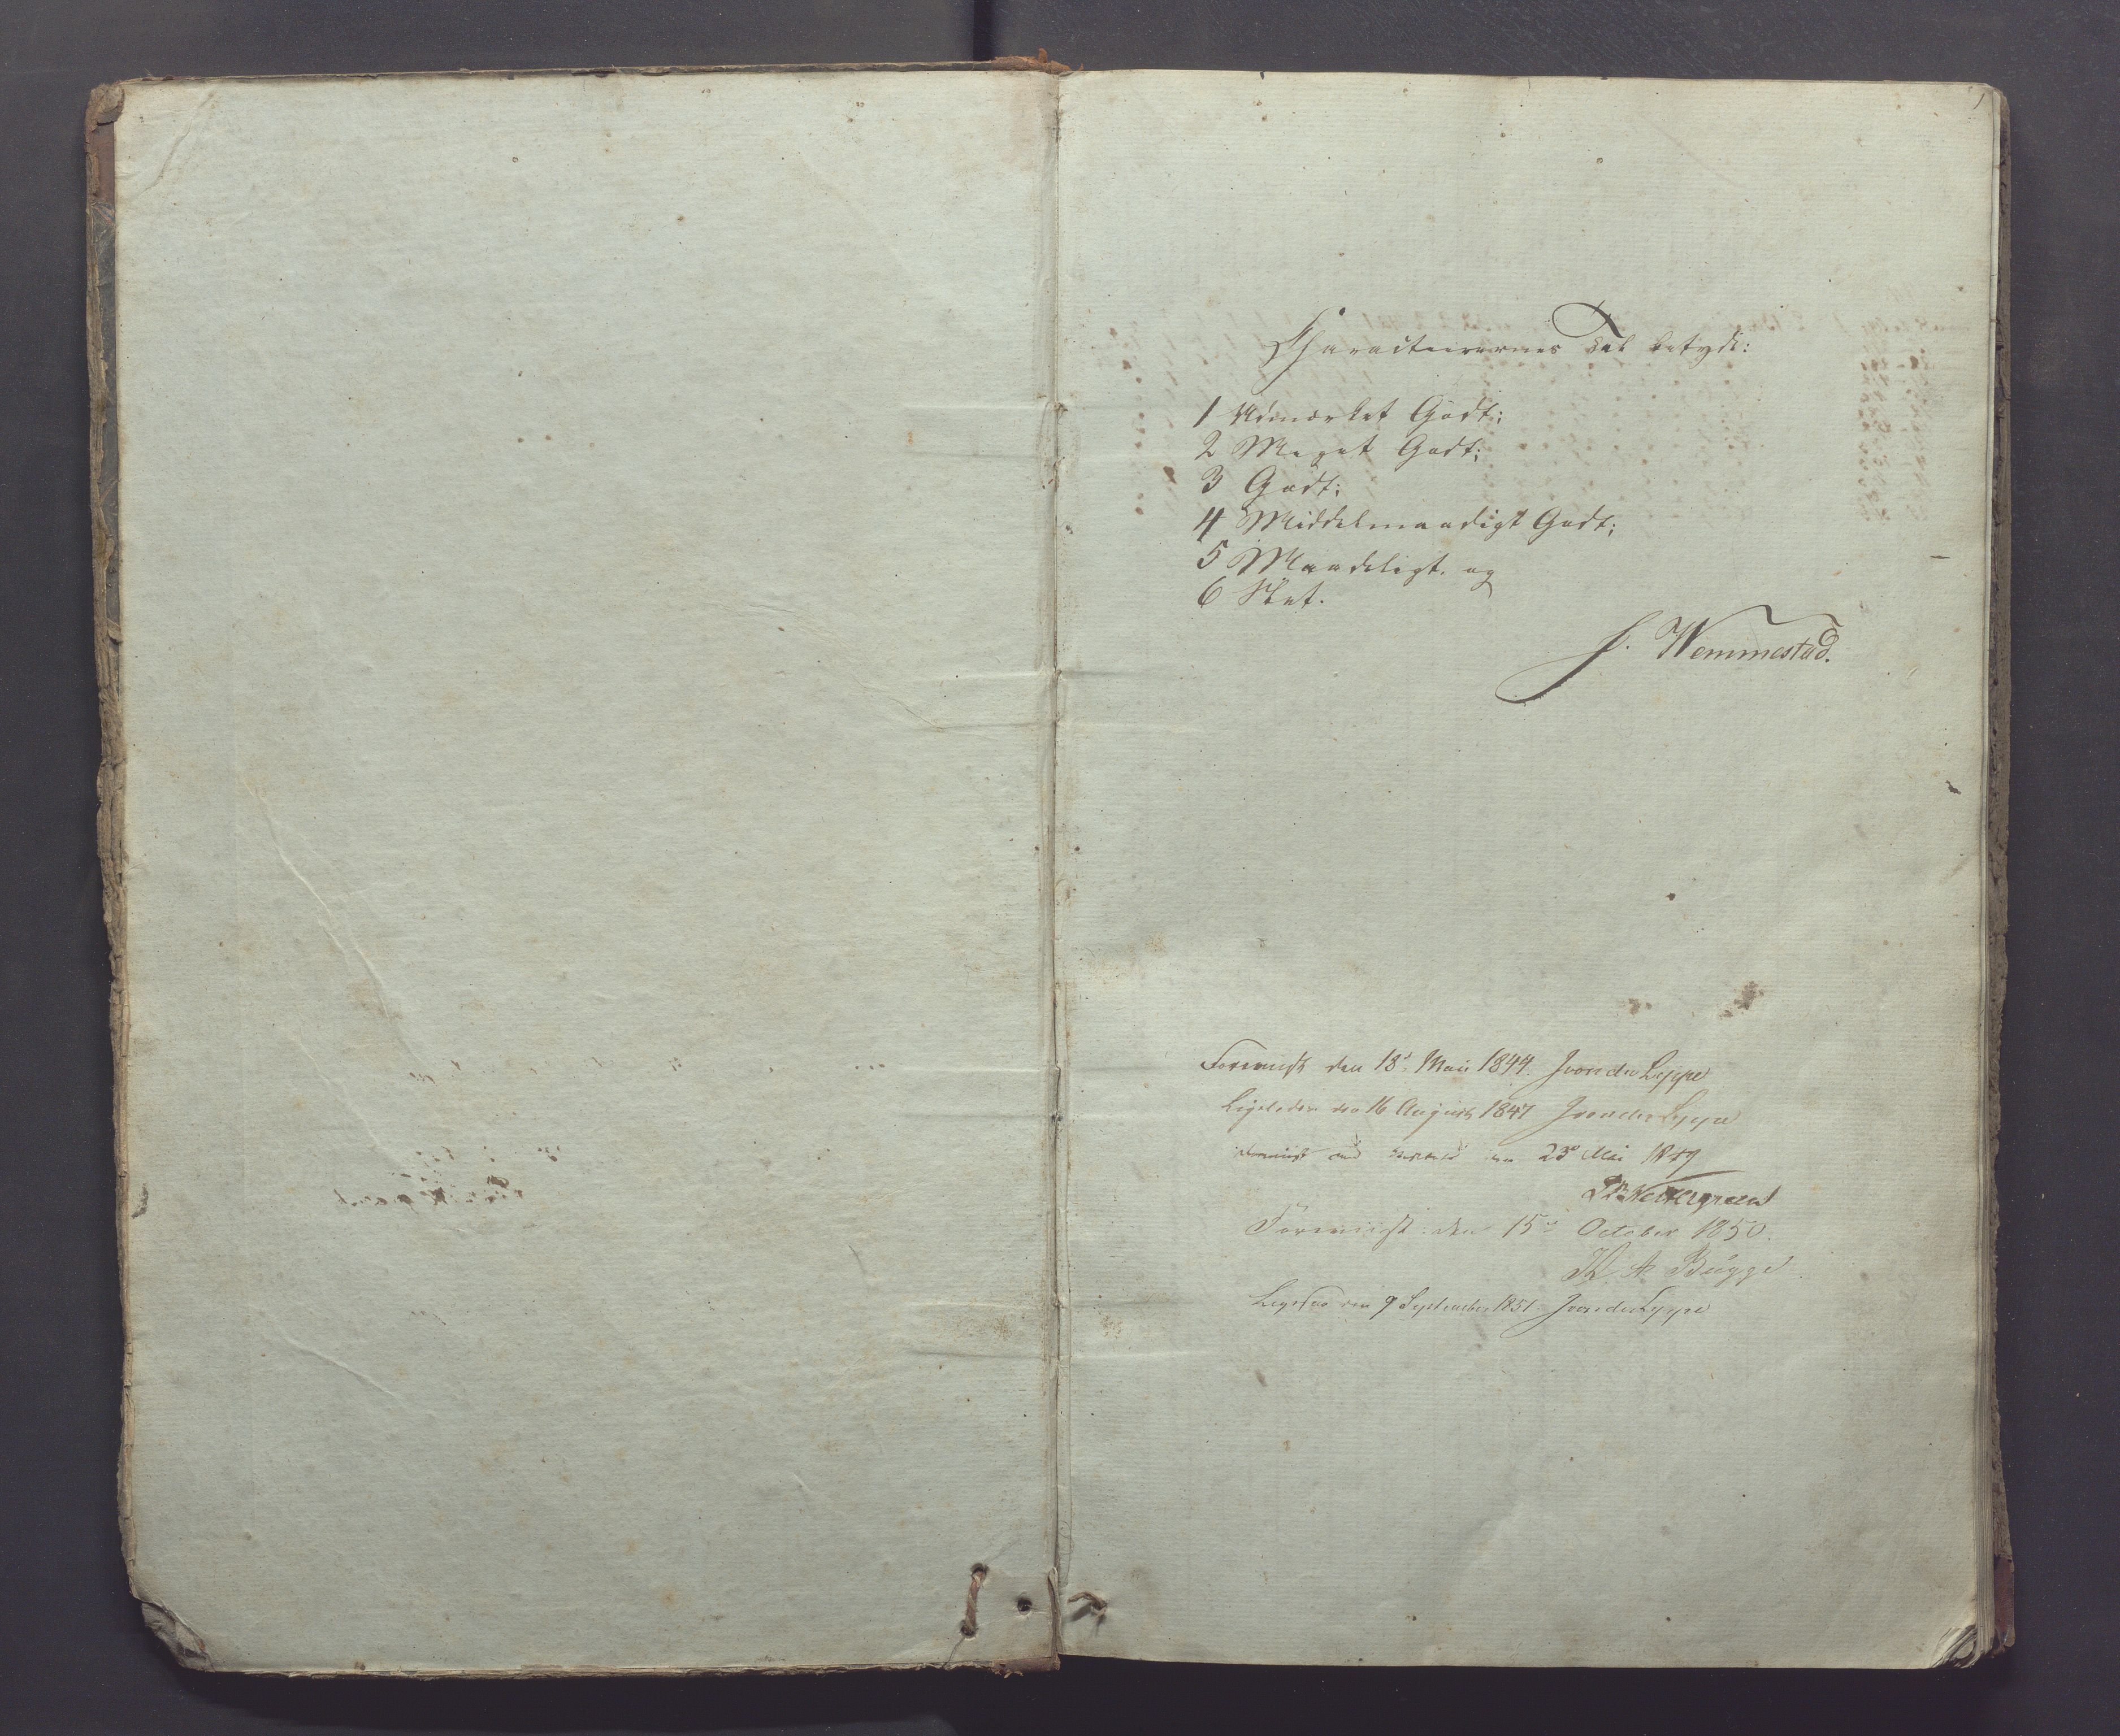 1
Characterernes Tal betyde:
1 Udmærket Godt;
2 Meget Godt;
3 Godt;
4 Middelmaadigt Godt;
5 Maadeligt. og
6 Slet.
J. Wemmestad.
Foreviist den 18d. Mai 1844. J von der Lippe
Ligeledes den 16 August 1847 J von der Lippe
Foreviist ved den 23d Mai 1849
Foreviist den 15d October 1850.
Bugge
Ligesaa den 9 September 1851 J von der Lippe